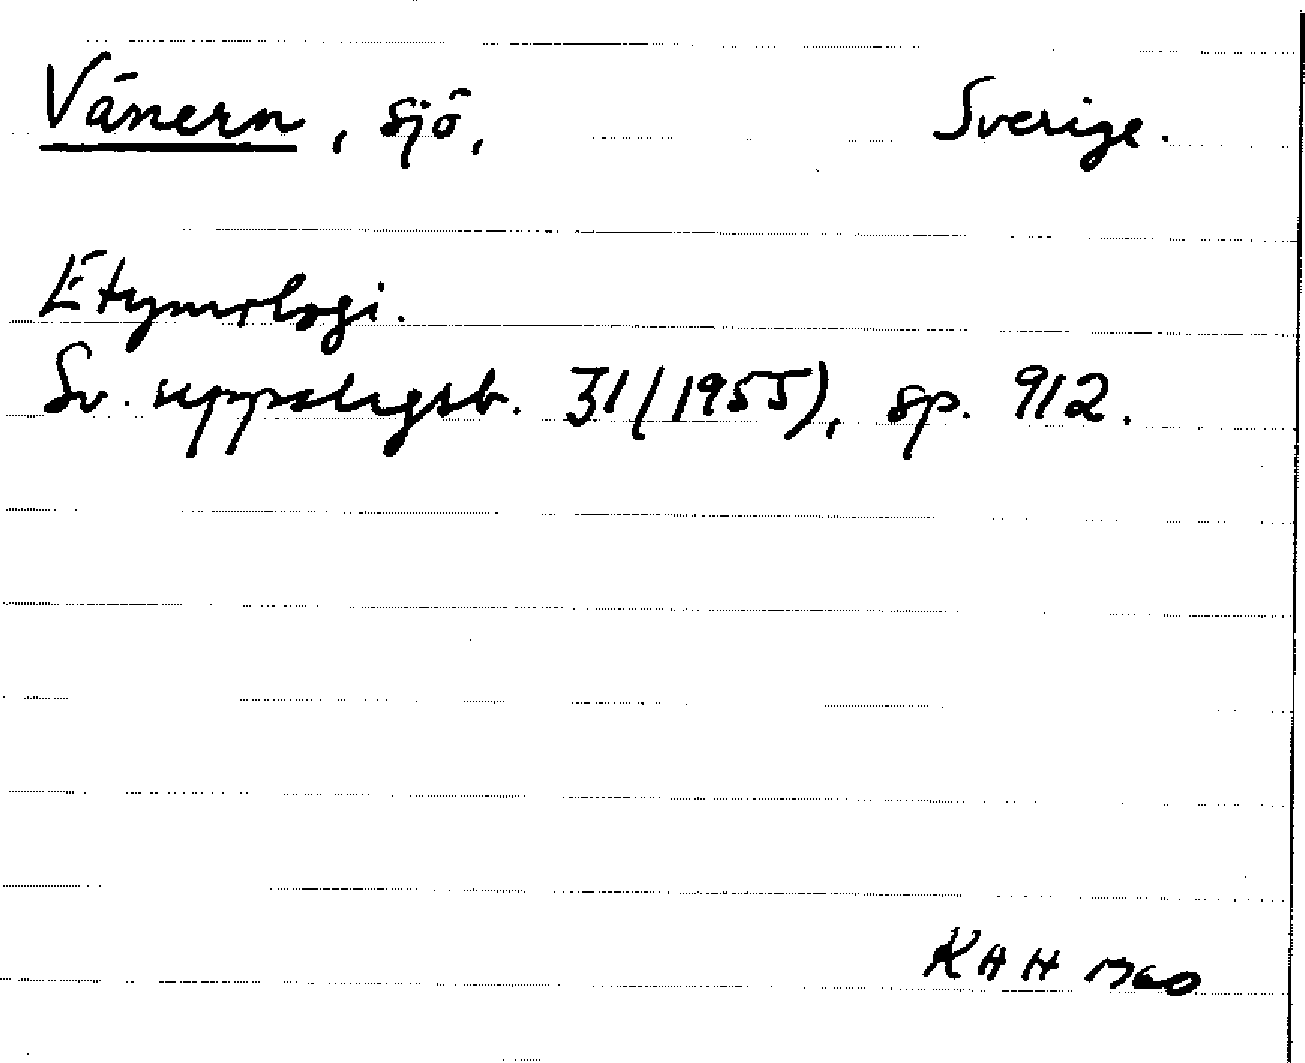 Vänern, sjö, Sverige.
Etymologi.
Sv. uppslagsb. 31(1955), sp. 912.
KHH 1960